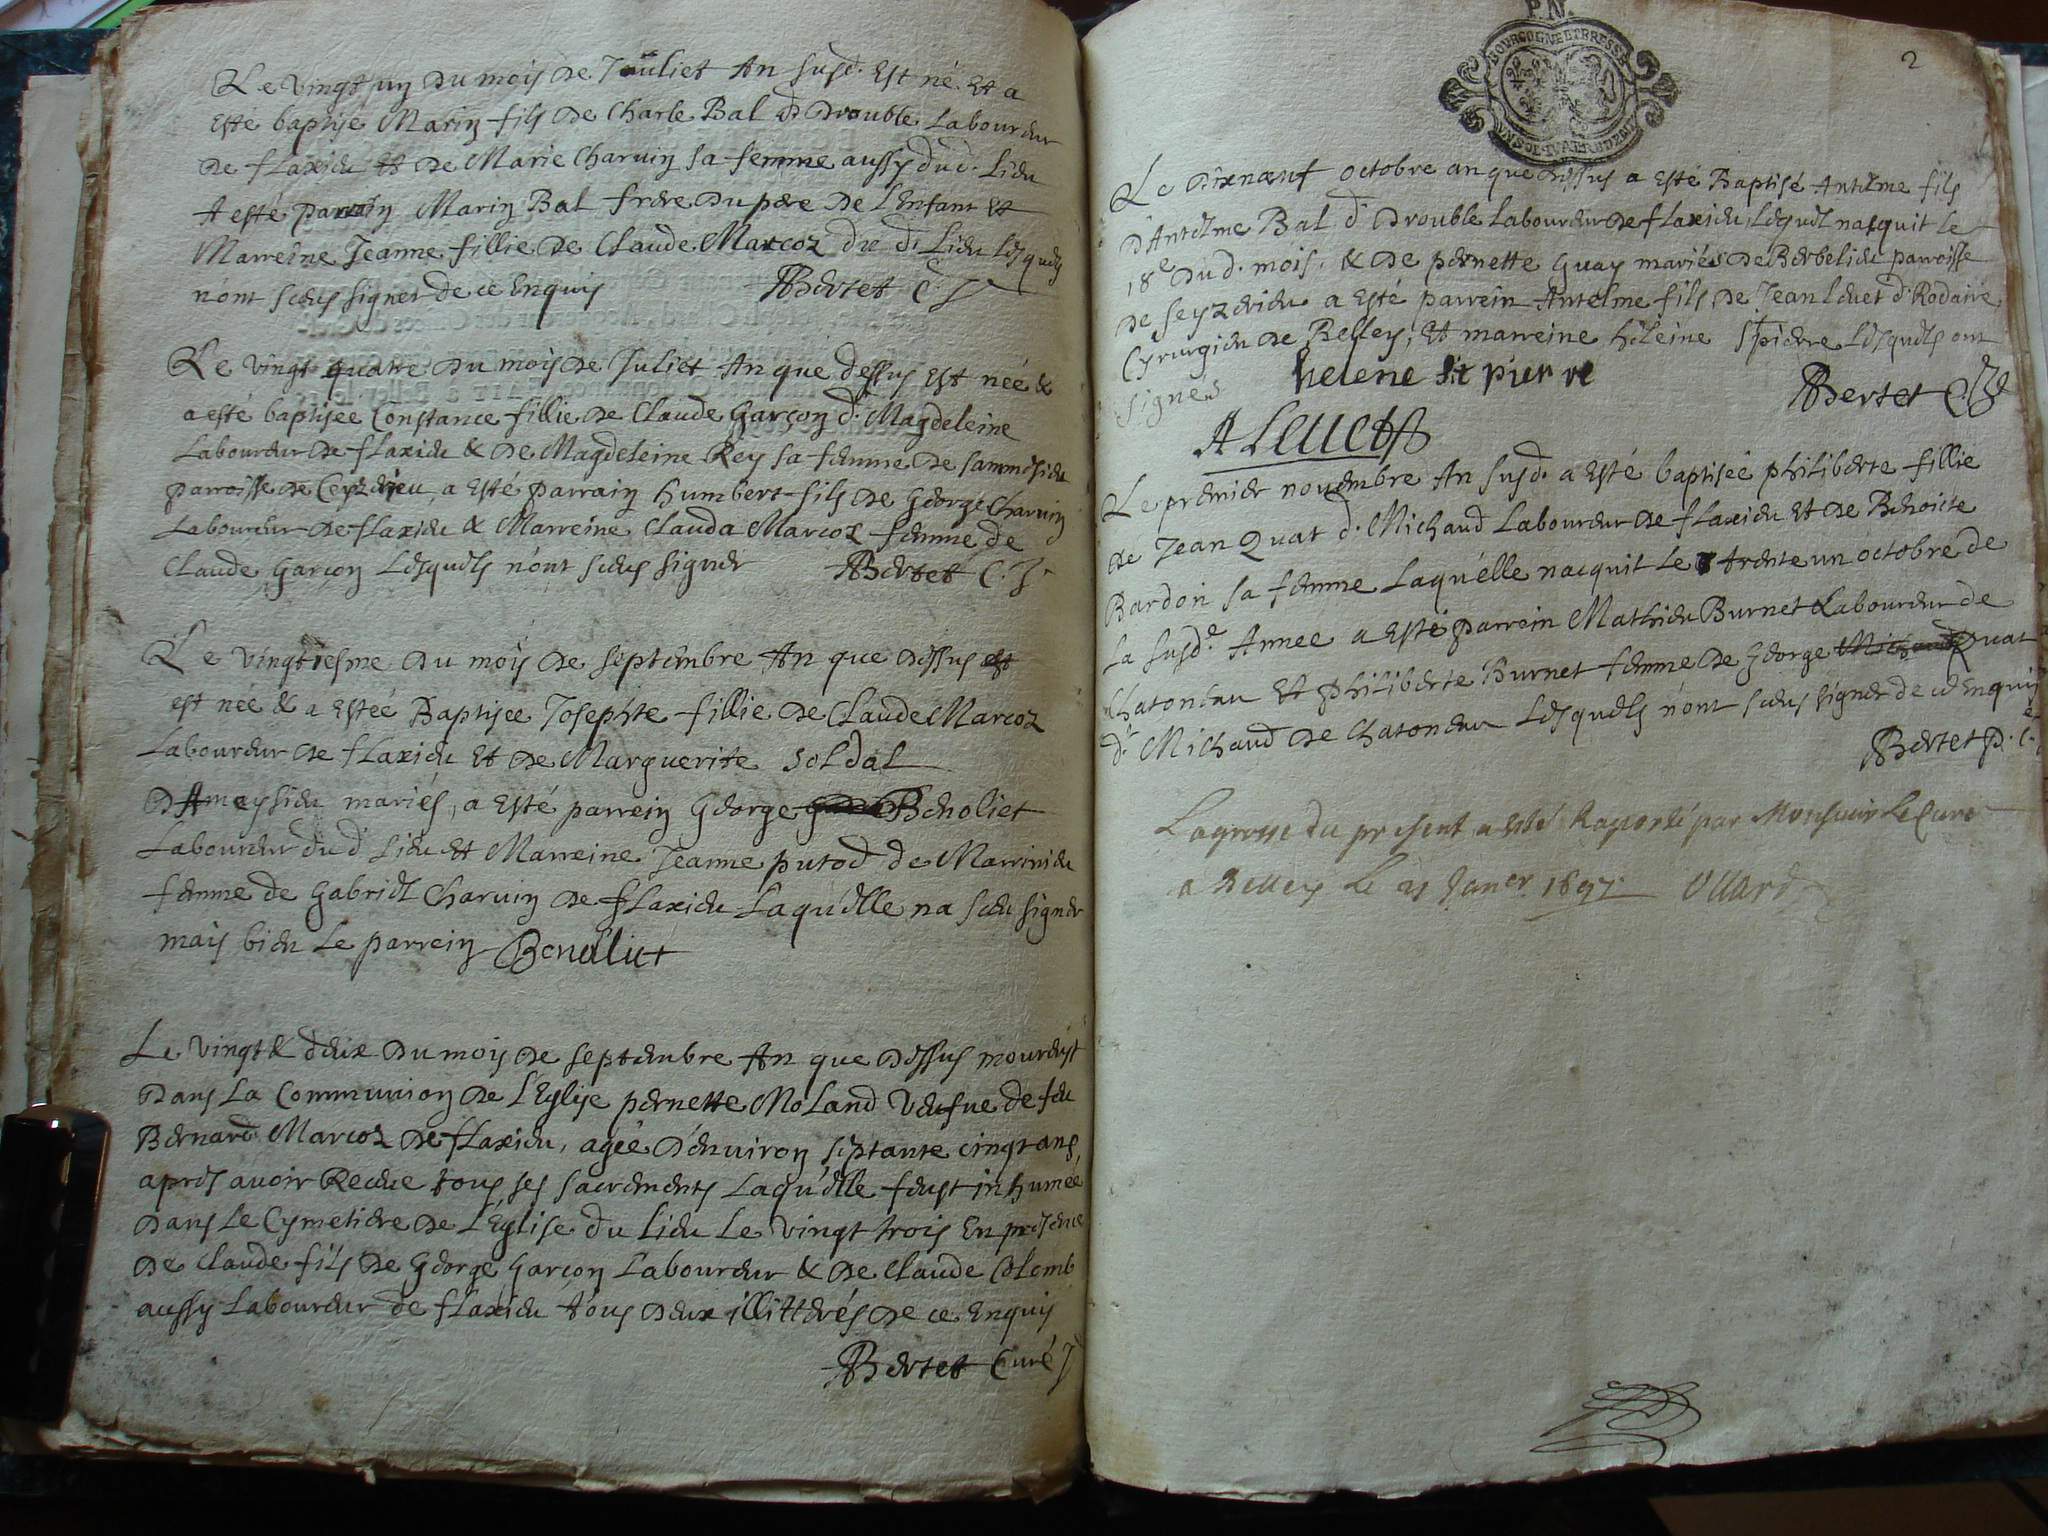 Le vingt un du mois de Jouliet An susd. Est né Et a
esté baptise Marin fils de Charle Bal d Drouble Laboureur
de flaxieu et de Marie Charvin sa femme aussy dud. Lieu
A esté parrein Marin Bal frere du pere de L'Enfant Et
Marreine Jeanne fillie de Claude Marcoz du d. Lieu Lesquels
n'ont sceus signer de ce Enquis Bertet C.
Le vingt quatre du mois de Juliet An que dessus Est née &
a esté baptisee Constance fillie de Claude Garçon d. Magdeleine
Laboureur de flaxieu & de Magdeleine Rey sa femme de sammeisieu
parroisse de Ceyzerieu, a esté parrain Humbert fils de George Charvin
Laboureur de flaxieu & Marreine Clauda Marcoz femme de
Claude Garçon Lesquels n'ont sceus signer Bertet C.
Le Vingtiesme du mois de septembre An que dessus est
est née & a estée Baptisee Josephte fillie de Claude Marcoz
Laboureur de flaxieu Et de Marguerite Soldal
d'Ameysieu mariés, a esté parrein George Benoliet
Laboureur dud Lieu et Marreine Jeanne putod de Marinieu
femme de Gabriel Charvin de flaxieu Laquelle na sceu signer
mais bien Le parrein Benoliet
Le Vingt & deux du mois de septembre An que dessus mourust
dans La Communion de L'Eglise pernette Moland veufve de feu
Bernard Marcoz de flaxieu, agée d'environ septante cinq ans,
apres avoir Receue tous ses sacrements Laqu'elle feust inhumée
dans Le Cymetiere de L'Eglise du lieu Le vingt trois En presence
de Claude fils de George Garçon Laboureur & de Claude Colomb
aussy Laboureur de flaxieu tous deux illitterés de ce Enquis
Bertet Curé
P.N.
BOURGOGNE ET BRESSE
2
Le dixneuf octobre an que dessus a esté Baptisé Antelme fils
d'Antelme Bal d. Drouble Laboureur de flaxieu Lequel nasquit Le
18e dud. mois, & de pernette Guay mariés de Berbelieu parroisse
de seyzerieu a esté parrein Antelme fils de Jean Leuet d. Rodaire
Cyrurgien de Belley, Et marreine heleine St pierre Lesquels ont
signés helene st pierre Bertet C.
A Leuet
Le premier novembre An susd. a esté baptisée philiberte fillie
de Jean Quat d. Michaud Laboureur de flaxieu Et de Benoicte
Bardon sa femme Laqu'elle nacquit Le trente un octobre de
La susd.e Annee a esté parrein Mathieu Burnet Laboureur de
Chatoneau Et philiberte Burnet femme de George Michaud Quat
d. Michaud de Chatoneur Lesquels n'ont sceus signer de ce Enquis
Bertet p. C.
La grosse du present a esté Raporté par Monsieur Le Curé
a Belley Le 21 Janer 1697